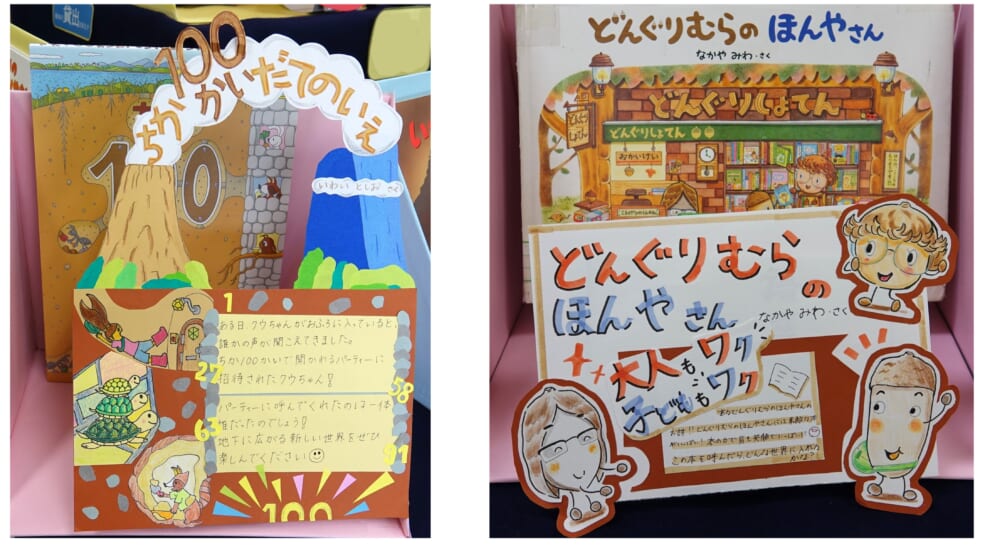 貸出
100
かいだてのいえ
ちか
100
いわい としお さく
1
ある日、クウちゃんがおふろに入っていると、
誰かの声が聞こえてきました。
ちか100かいで開かれるパーティーに
招待されたクウちゃん!
27
58
パーティーに呼んでくれたのは一体
誰だったのでしょう!
地下に広がる新しい世界をぜひ
楽しんでください
63
91
100
どんぐりむらの ほんやさん
なかや みわ・さく
どんぐりしょてん
どんぐりしょてん
おかいけい
どんぐりむら
の
ほんやさん
なかや みわ・さく
大人もワク
子どももワク
お話!!どんぐりむらのほんやさんには素敵な本
がいっぱい!
この本を呼んだら、どんな世界に入れる
かな?